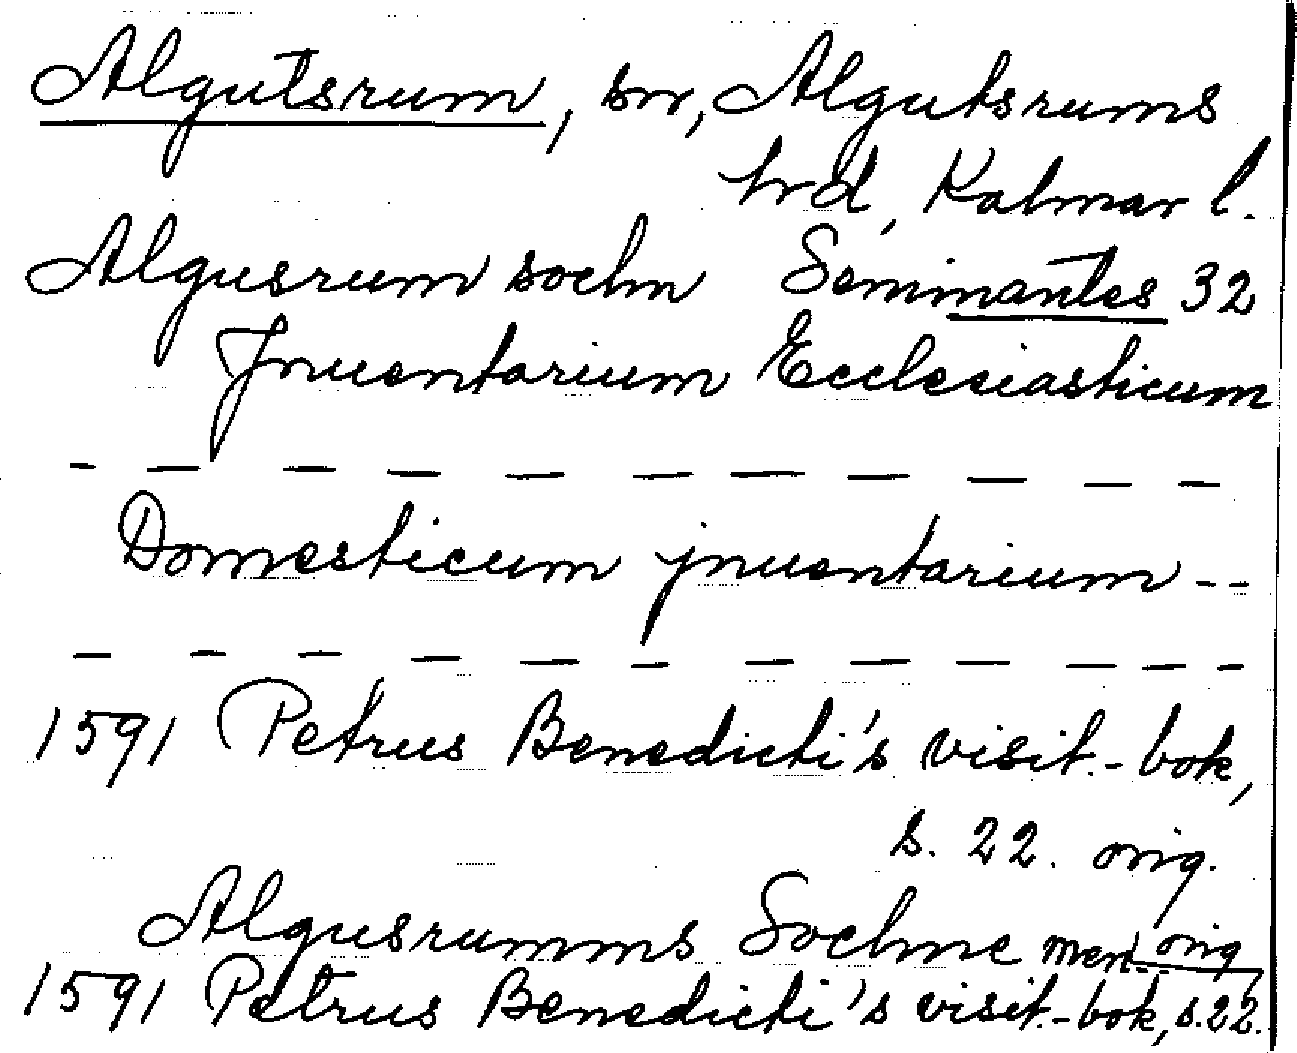 Algutsrum, sn, Algutsrums
hrd, Kalmar l.
Algusrum sochn Seminantes 32
Jnuentarium Ecclesiasticum
— — — — — — — — — — —
Domesticum jnuentarium --
— — — — — — — — — — — —
1591 Petrus Benedicti's visit.-bok,
s. 22. orig.
Algusrumms Sochne men. orig
1591 Petrus Benedicti's visit.-bok, s.22.